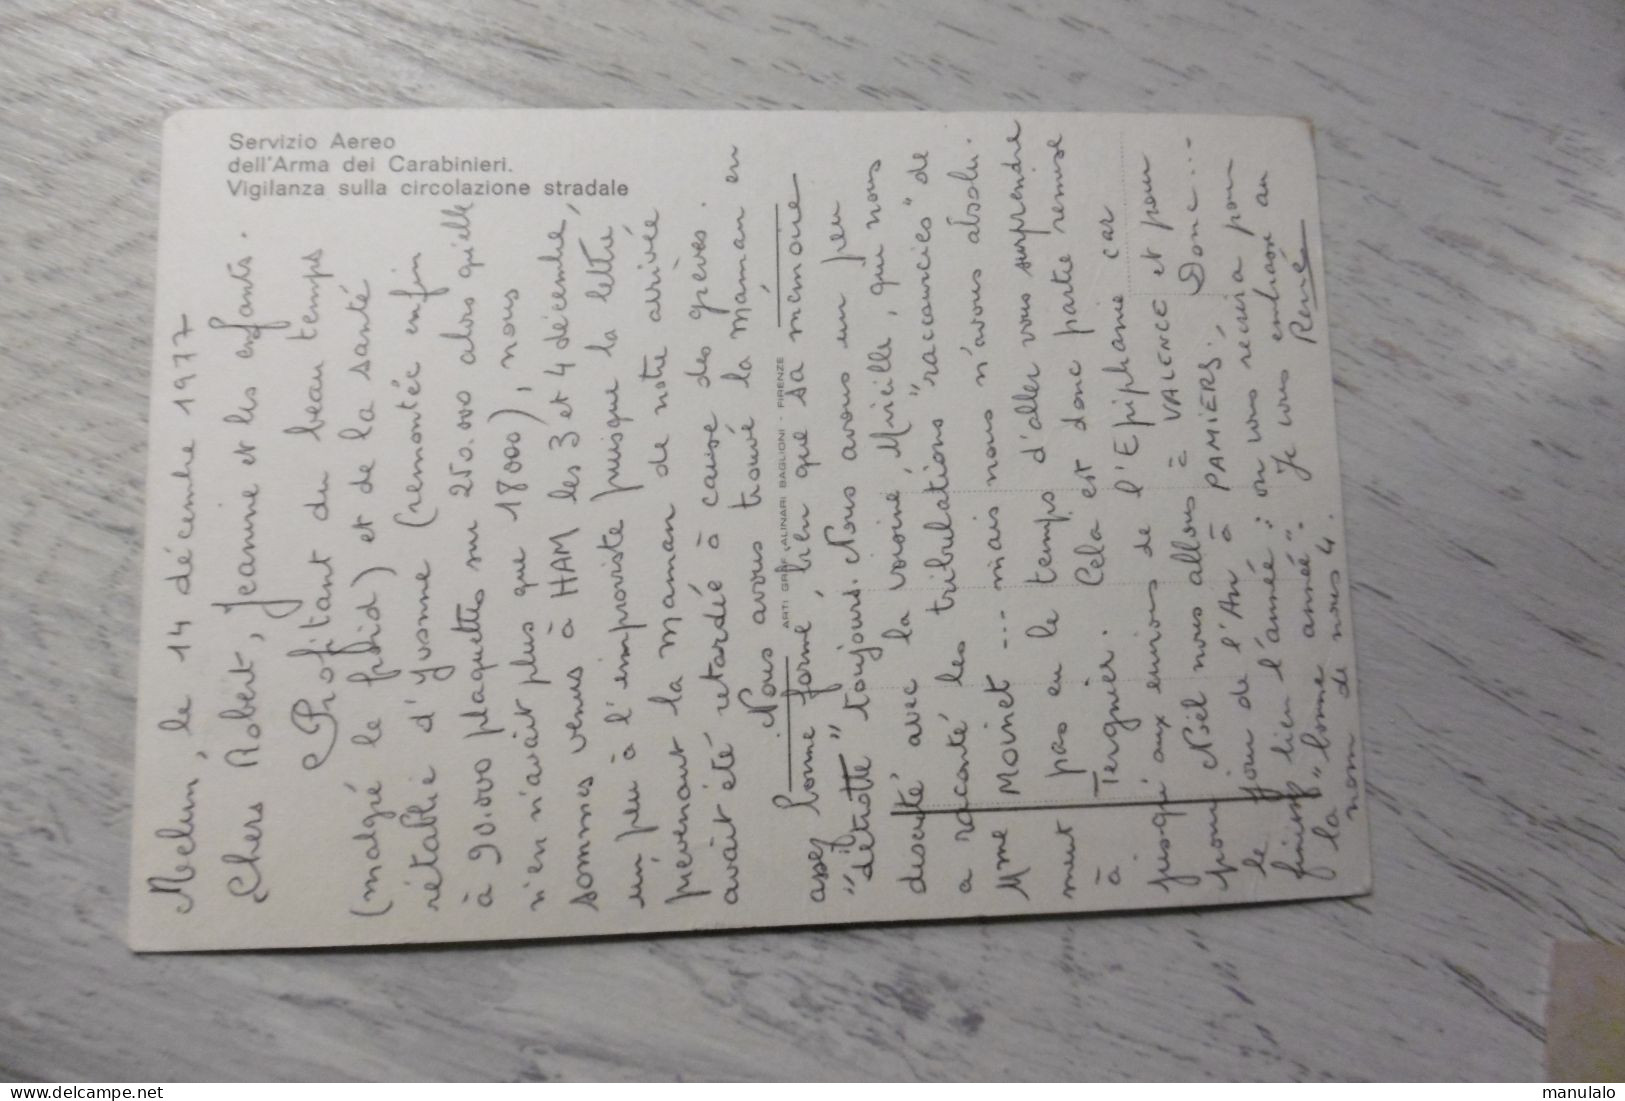 Servizio Aereo
dell'Arma dei Carabinieri.
Vigilanza sulla circolazione stradale
ARTI GRAF. ALINARI BAGLIONI - FIRENZE
Melun, le 14 décembre 1977
Chers Robert, Jeanine et les enfants.
Profitant du beau temps
(malgré le froid) et de la santé
rétablie d'Yvonne (remontée enfin
à 90.000 plaquettes sur 250.000 alors qu'elle
n'en n'avait plus que 18000), nous
sommes venus à HAM les 3 et 4 décembre,
un peu à l'improviste puisque la lettre
prévenant la Maman de notre arrivée
avait été retardée à cause des grèves.
Nous avons trouvé la Maman en
assez bonne forme, bien que sa mémoire
"détriotte" toujours. Nous avons un peu
discuté avec la voisine, Mireille, qui nous
a raconté les tribulations "raccourcies" de
Mme MOINET --- mais nous n'avons absolu-
ment pas eu le temps d'aller vous surprendre
à Tergnier. Cela est donc partie remise
jusqu'aux environs de l'Epiphanie car
pour Noël nous allons à VALENCE et pour
le jour de l'An à PAMIERS. Donc ---
finissez bien l'année : on vous reverra pour
la "bonne année". Je vous embrasse au
nom de nous 4. René
manulalo